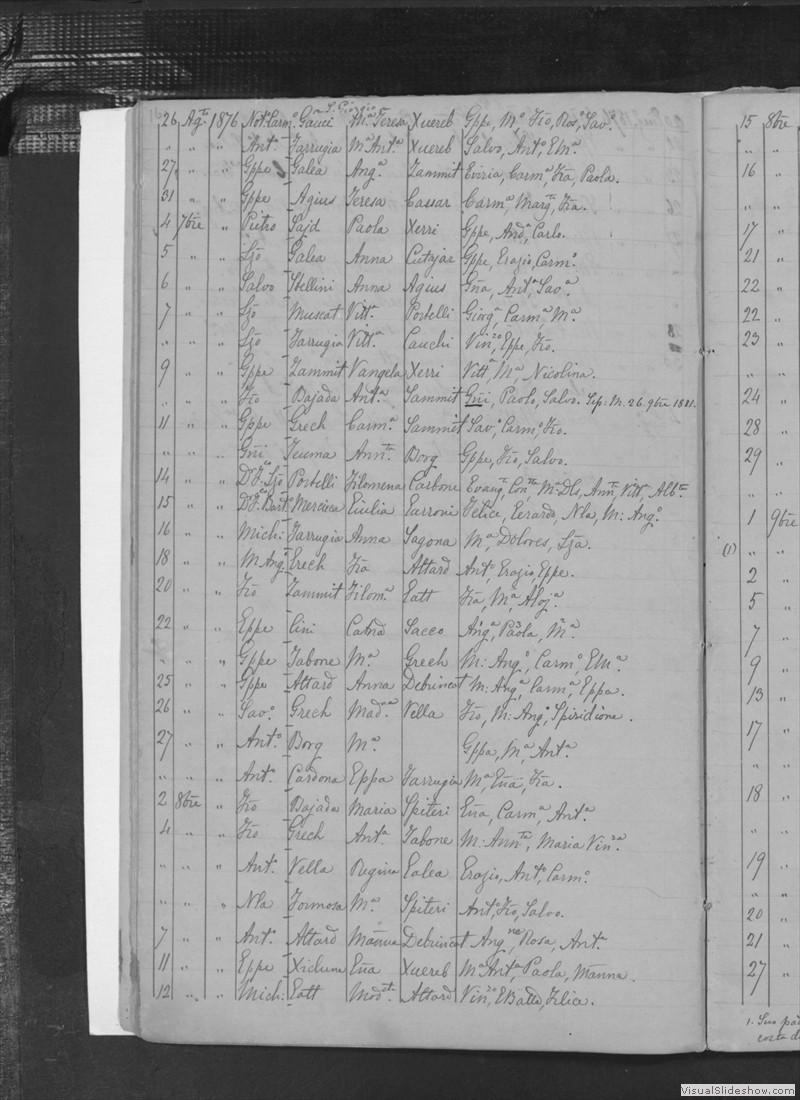 S. Giorgio
26 Ag.to 1876 Not. Carm.o Gauci M.a Teresa Xuereb Gppe, M.o, Fčo, Ros.o, Sav.o
" " " Ant.o Farrugia M.a Ant.a Xuereb Salvo, Ant.o, EM.a
27 " " Gppe Galea Ang.a Zammit Carm.a, Fča, Paola.
31 " " Gppe Agius Teresa Cassar Carm.a, Marg.ta, Fča.
4 7bre " Pietro Sajd Paola Xerri Gppe, And.a, Carlo.
5 " " Ljo Galea Anna Cutajar Gppe, Orazio, Carm.o
6 " " Salvo Stellini Anna Agius Gña, Ant.a, Sav.a
7 " " Ljo Muscat Vitt.a Portelli Giorg.a, Carm.a, M.a
" " " Ljo Farrugia Vitt.a Cauchi Vin.zo, Gppe, Fčo.
9 " " Gppe Zammit Vangela Xerri Vitt.a, M.a Nicolina.
" " " Fčo Bajada Ant.a Sammit Gni, Paolo, Salvo. Sep: M. 26. 9bre 1881.
11 " " Gppe Grech Carm.a Sammit Sav.o, Carm.o, Fčo.
" " " Gni Teuma Ann.ta Borg Gppe, Fčo, Salvo.
14 " " Ljo Portelli Filomena Carbone Evang.ta, Con.tta, M.a Dls, Ann.ta, Vitt.a, Alb.to
15 " " Bart.o Mercieca Giulia Felice, Nla, M: Ang.o
16 " " Mich: Farrugia Anna Sagona M.a Dolores, Lja.
18 " " M. Ang.o Grech Fča Attard Ant.o, Orazio, Gppe.
20 " " Fčo Zammit Filom.a Gatt Fča, M.a, Aloj.a
22 " " Gppe Cini Catña Sacco Ang.a, Paola, M.a
" " " Gppe Tabone M.a Grech M: Ang.o, Carm.o, EM.a
25 " " Gppe Attard Anna Debrincat M: Ang.a, Carm.a, Gppa.
26 " " Sav.o Grech Mad.na Vella Fčo, M: Ang.o, Spiridione.
27 " " Ant.o Borg M.a Gppa, M.a, Ant.a
" " " Ant.o Cardona Gppa Farrugia M.a, Gña, Fča.
2 8bre " Fčo Bajada Maria Spiteri Gña, Carm.a, Ant.a
4 " " Fčo Grech Ant.a Tabone M: Ann.ta, Maria Vin.za
" " " Ant.o Vella Regina Galea Orazio, Ant.o, Carm.o
" " " Nla Formosa M.a Spiteri Ant.o, Fčo, Salvo.
7 " " Ant.o Attard Marina Debrincat Rosa, Ant.a
11 " " Gppe Xiclune Gña Xuereb M.a Ant.a, Paola, Marina.
12 " " Mich: Gatt Mod.sta Attard Vin.zo, GBatta, Filia.
15 8bre
" "
16 "
" "
17 "
21 "
22 "
22 "
23 "
" "
24 "
28 "
29 "
" "
1 9bre
(1) " "
2 "
5 "
7 "
9 "
13 "
17 "
18 "
" "
19 "
" "
20 "
21 "
27 "
1. Suo
VisualSlideshow.com